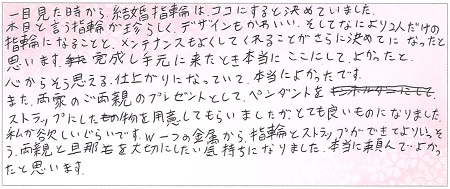 一目見た時から、結婚指輪は、ココにすると決めていました。
木目と言う指輪が珍らしく、デザインもかわいい、そしてなにより2人だけの
指輪になることと、メンテナンスもよくしてくれることがさらに決めてになったと
思います。完成し手元に来たとき本当にここにして、よかったと、
心からそう思える、仕上がりになっていて、本当によかったです。
また、両家のご両親のプレゼントとして、ペンダントをキーホルダーにして
ストラップにした物を用意してもらいましたが、とても良いものになりました。
私が欲しいぐらいです。w 一つの金属から、指輪とストラップができてよりいっそ
う、両親と旦那を大切にしたい気持ちになりました。本当に頼んでよかっ
たと思います。